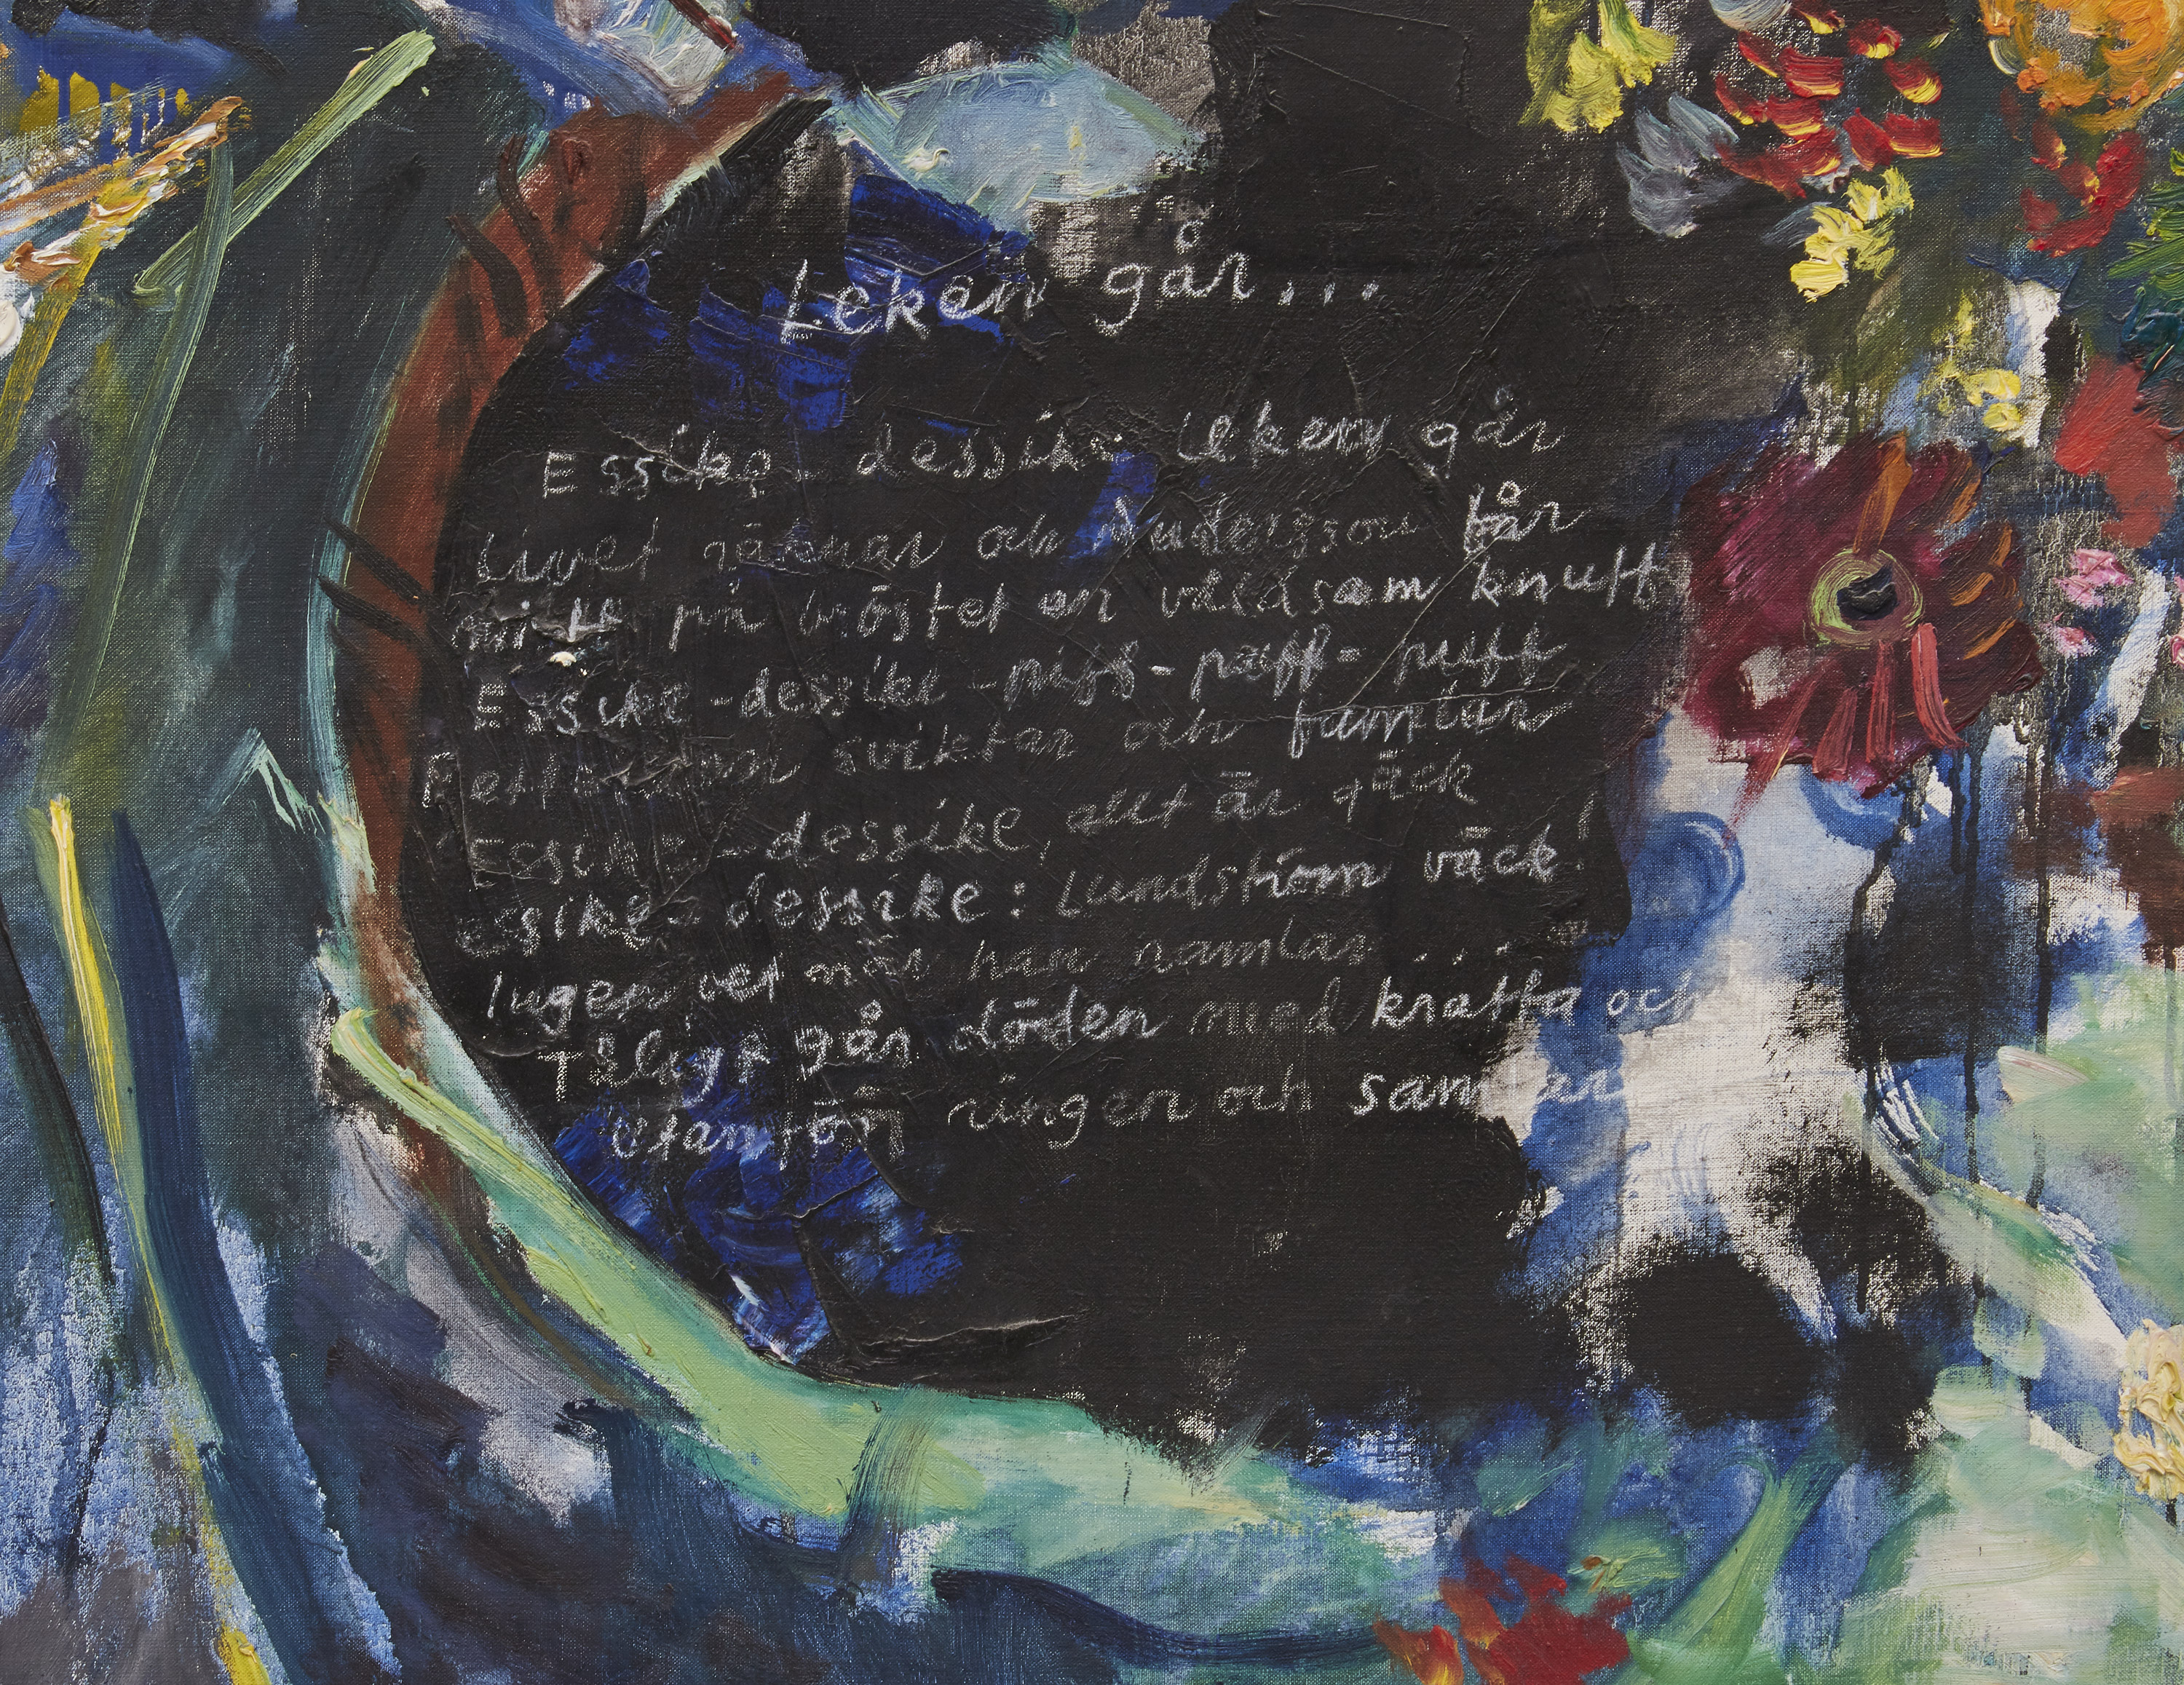 Leken går...
Essike-dessike leken går
Livet och Andersson får
mitt på bröstet en våldsam knuff
Essike-dessike-piff-paff-puff
sviktar och famlar
Essike-dessike, allt är täck
essike-dessike: Lundström väck!
Ingen vet när han ramlar...
Tåligt går döden med kratta och
utanför ringen och samlar